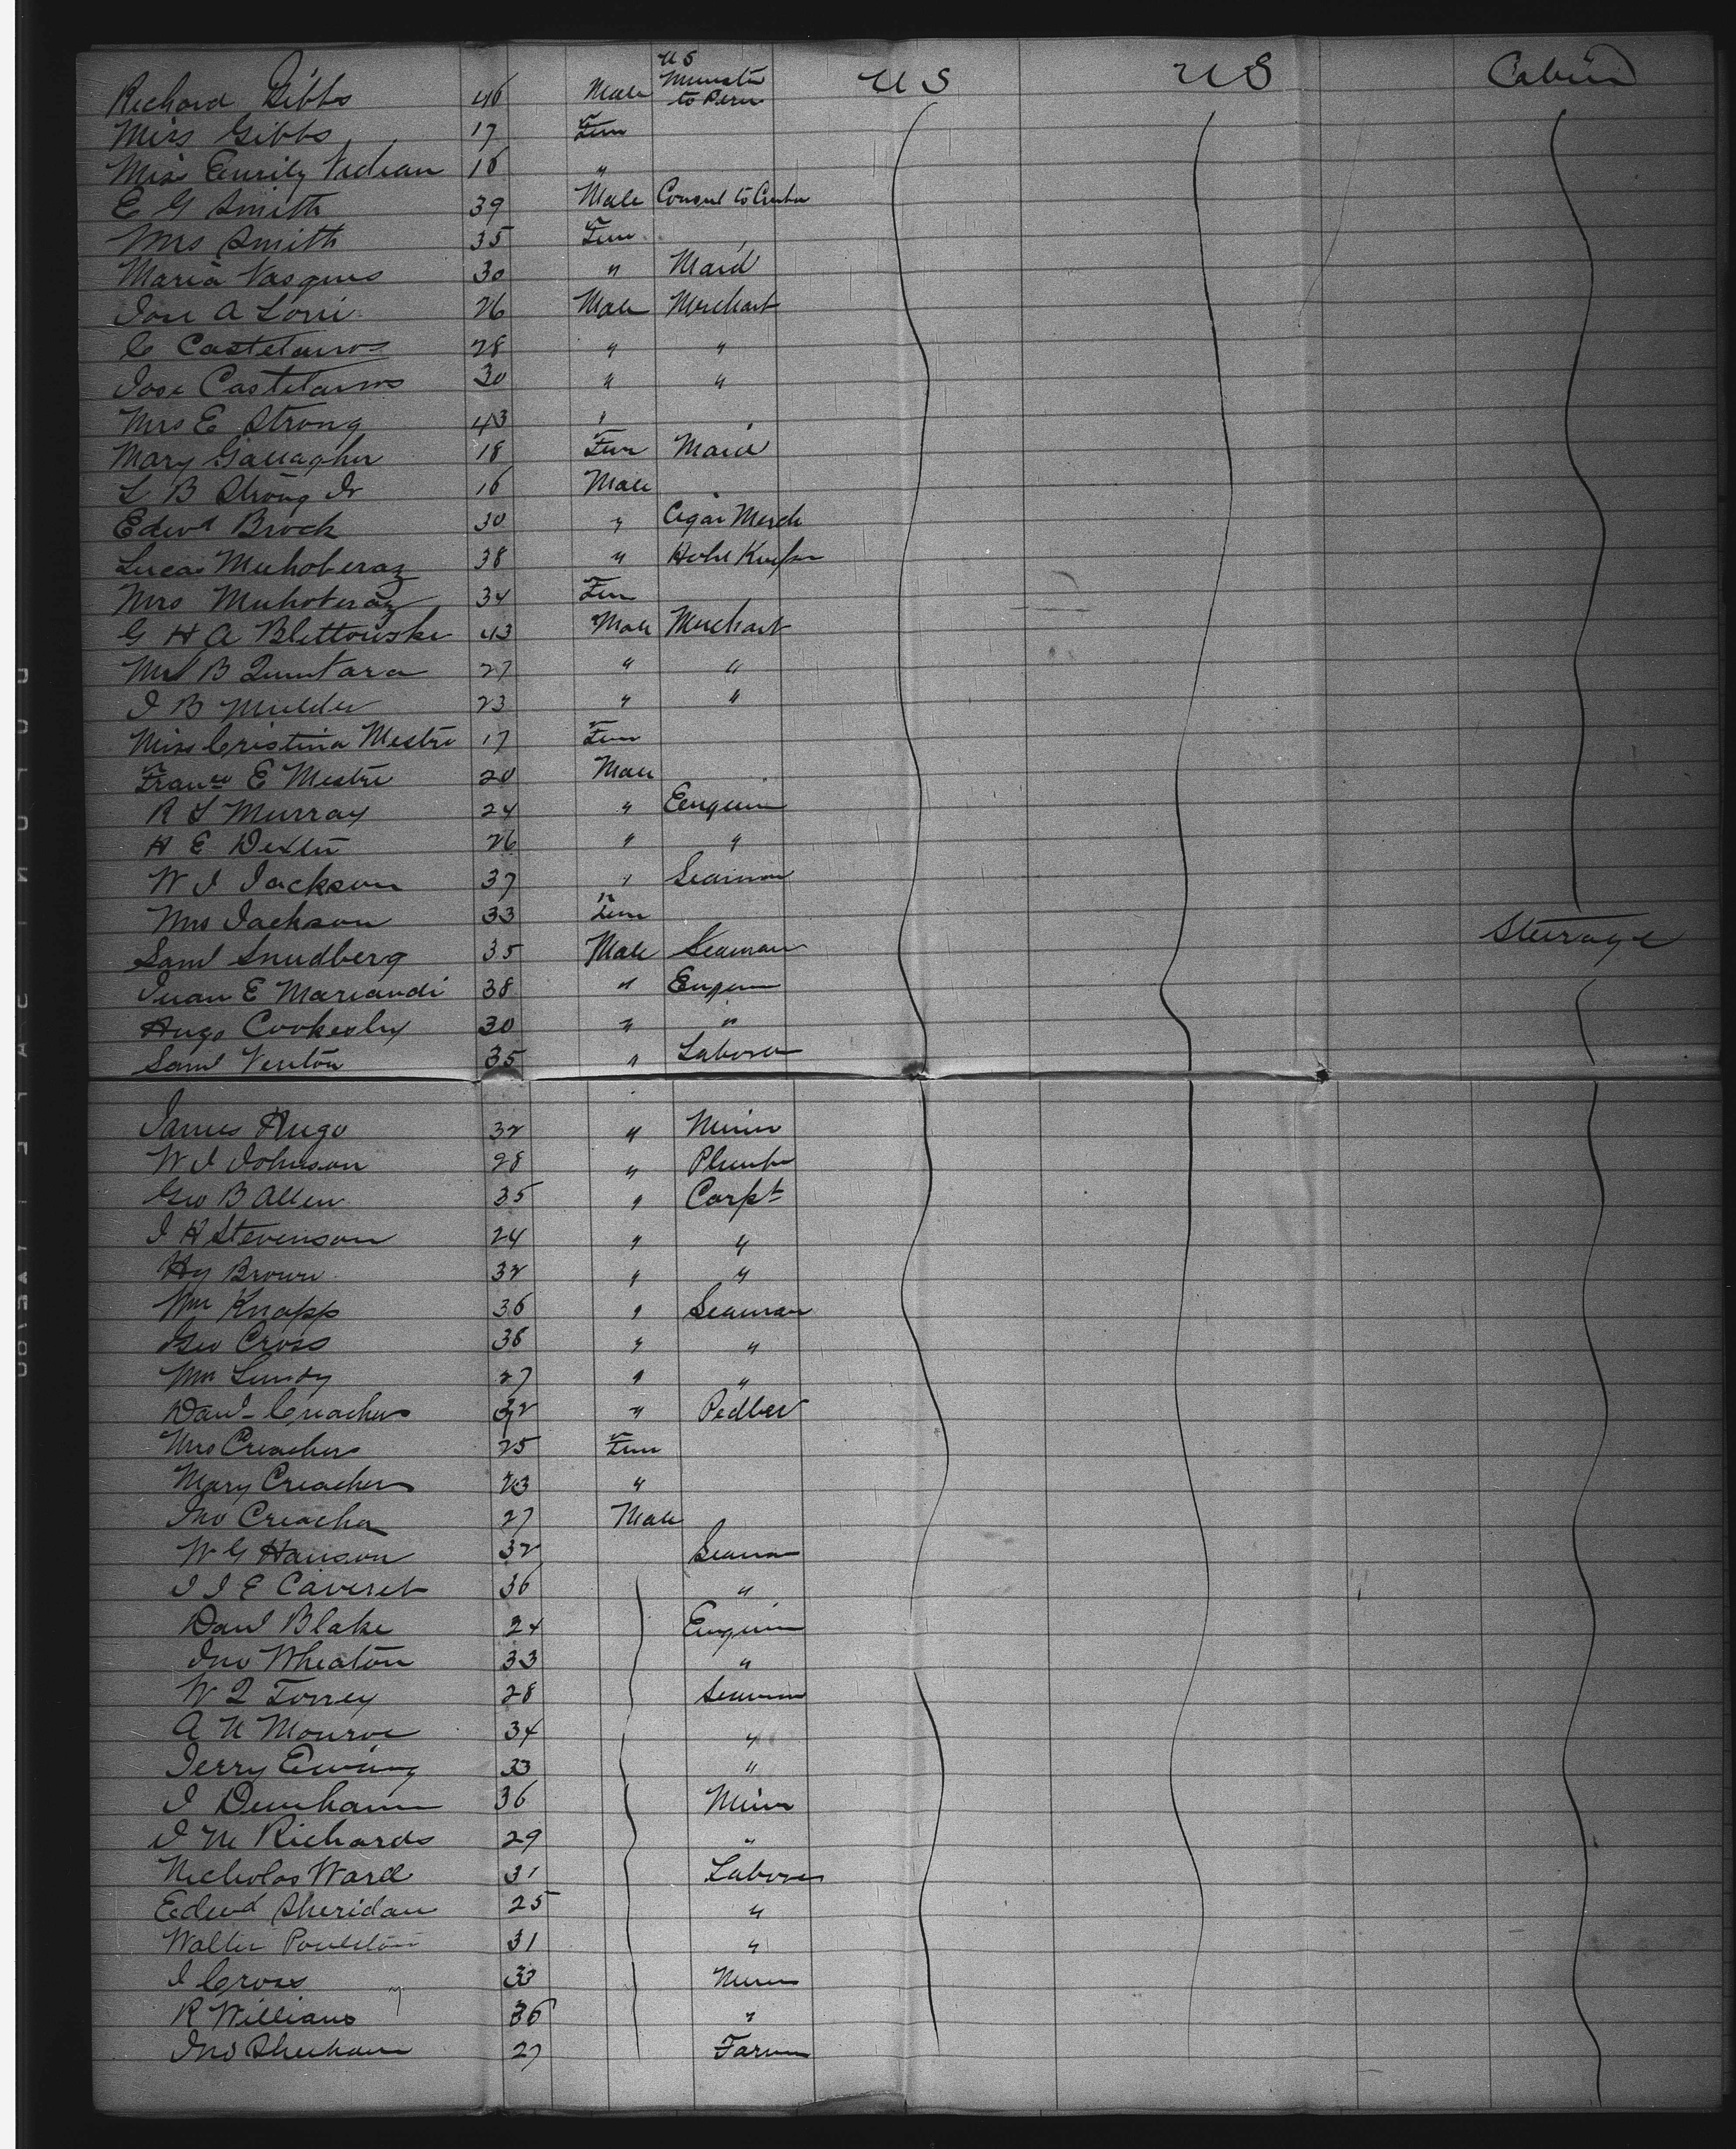 Richard Gibbs 46 Male US Minister to Peru US US Cabin
Miss Gibbs 17 Fem
Miss Emily Vidian 16 "
E G Smith 39 Male Consul to Cuba
Mrs Smith 35 Fem
Maria Vasques 30 " Maid
Jose A Lorri 26 Male Merchant
C 28 " "
Jose 30 " "
Mrs E Strong 43 "
Mary Gallagher 18 Fem Maid
L B Strong Jr 16 Male
Edwd Brock 30 " Cigar Merch
Lucas Muhoberaz 38 " Hotel Keeper
Mrs Muhoberaz 34 Fem
G H A Blettowske 43 Male Merchant
B Quintara 27 " "
J B Mulder 23 " "
Miss Cristina Mestre 17 Fem
Franco E Mestre 20 Male
R L Murray 24 " Engineer
H E Dexter 26 " "
W J Jackson 37 " Seaman
Mrs Jackson 33 Fem
Saml Snudberg 35 Male Seaman Steerage
Juan E Mariandi 38 " Engineer
Hugo Cookesley 30 " "
Saml Venton 35 " Laborer
James Hugo 32 " Miner
W J Johnson 28 " Plumber
Geo B Allen 35 " Carpt
J H Stevenson 24 " "
Hy Brown 32 " "
Wm Knapp 36 " Seaman
Geo Cross 38 " "
Wm Lundy 27 " "
Danl Creachers 32 " Pedler
Mrs Creachers 25 Fem
Mary Creachers 23 "
Jno Creacha 27 Male
W G Hanson 32 Seaman
J J E Caveret 36 "
Danl Blake 24 Engineer
Jno Wheaton 33 "
W Q Torrey 28 Seaman
A N Monroe 34 "
Jerry Ewing 33 "
J Dunham 36 Miner
J M Richards 29 "
Nicholas Ward 31 Laborer
Edwd Sheridan 25 "
Walter Poulston 31 "
J Cross 33 Miner
R Williams 36 "
Jno Sheehan 27 Farmer